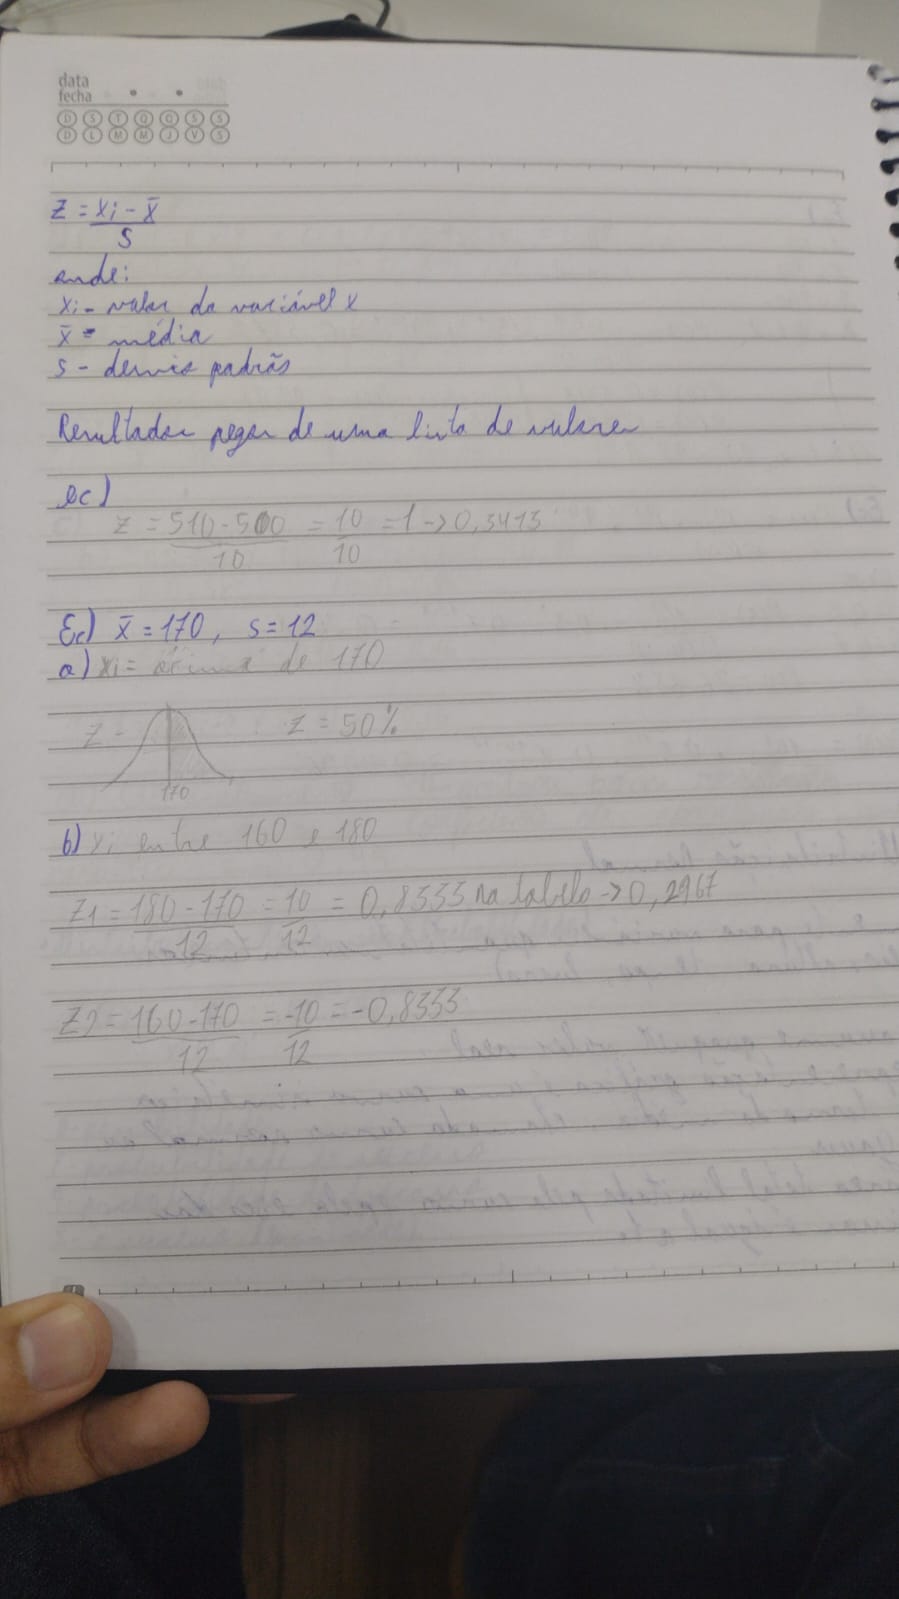 data
fecha
D S T Q Q S S
D L M M J V S
Z = xi - x̄
S
onde:
xi - valor da variável x
x̄ = média
s - desvio padrão
Resultados pegar de uma lista de valores
ec)
Z = 510 - 500 = 10 = 1 -> 0,3413
10 10
Ec) x̄ = 170, s = 12
a) xi = acima de 170
Z = Z = 50%
170
b) xi entre 160 e 180
Z1 = 180 - 170 = 10 = 0,8333 na tabela -> 0,2967
12 12
Z2 = 160 - 170 = -10 = -0,8333
12 12